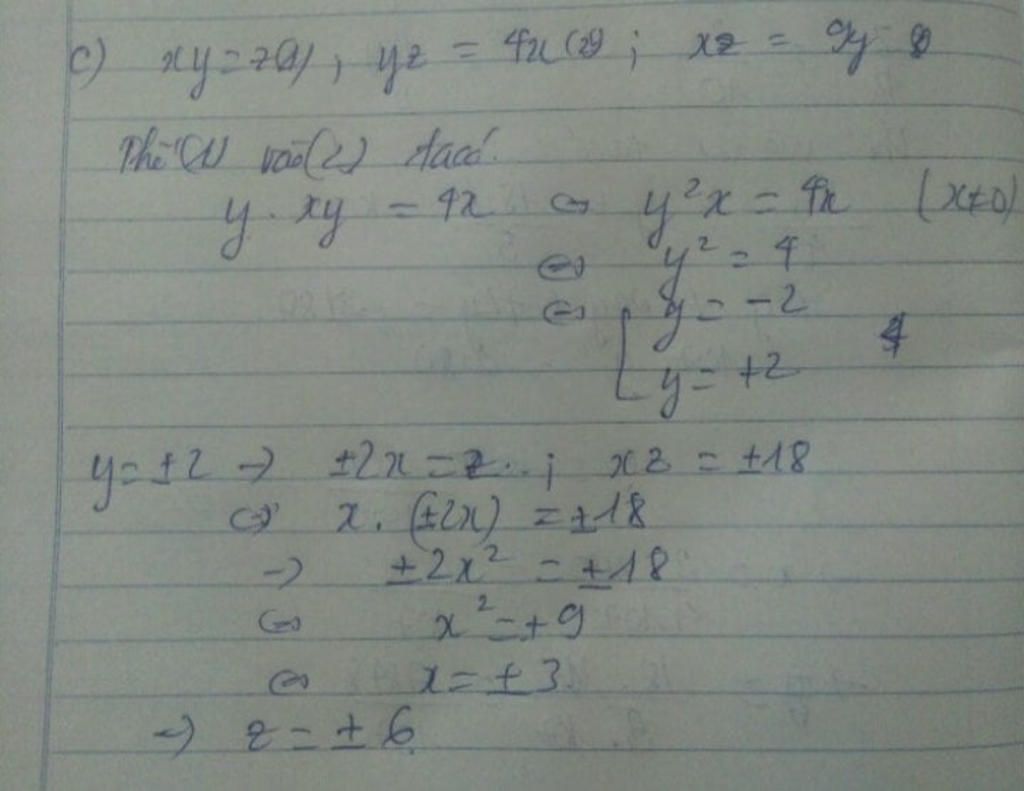 c) xy = z (1) ; yz = 4x (2) ; xz = 9y
Thế (1) vào (2) ta có.
y . xy = 4x ⇔ y²x = 4x (x≠0)
⇔ y² = 4
⇔ [ y = -2
y = +2
y = ±2 → ±2x = z.. ; xz = ±18
⇔ x. (±2x) = ±18
→ ±2x² = ±18
⇔ x² = +9
⇔ x = ±3
→ z = ±6